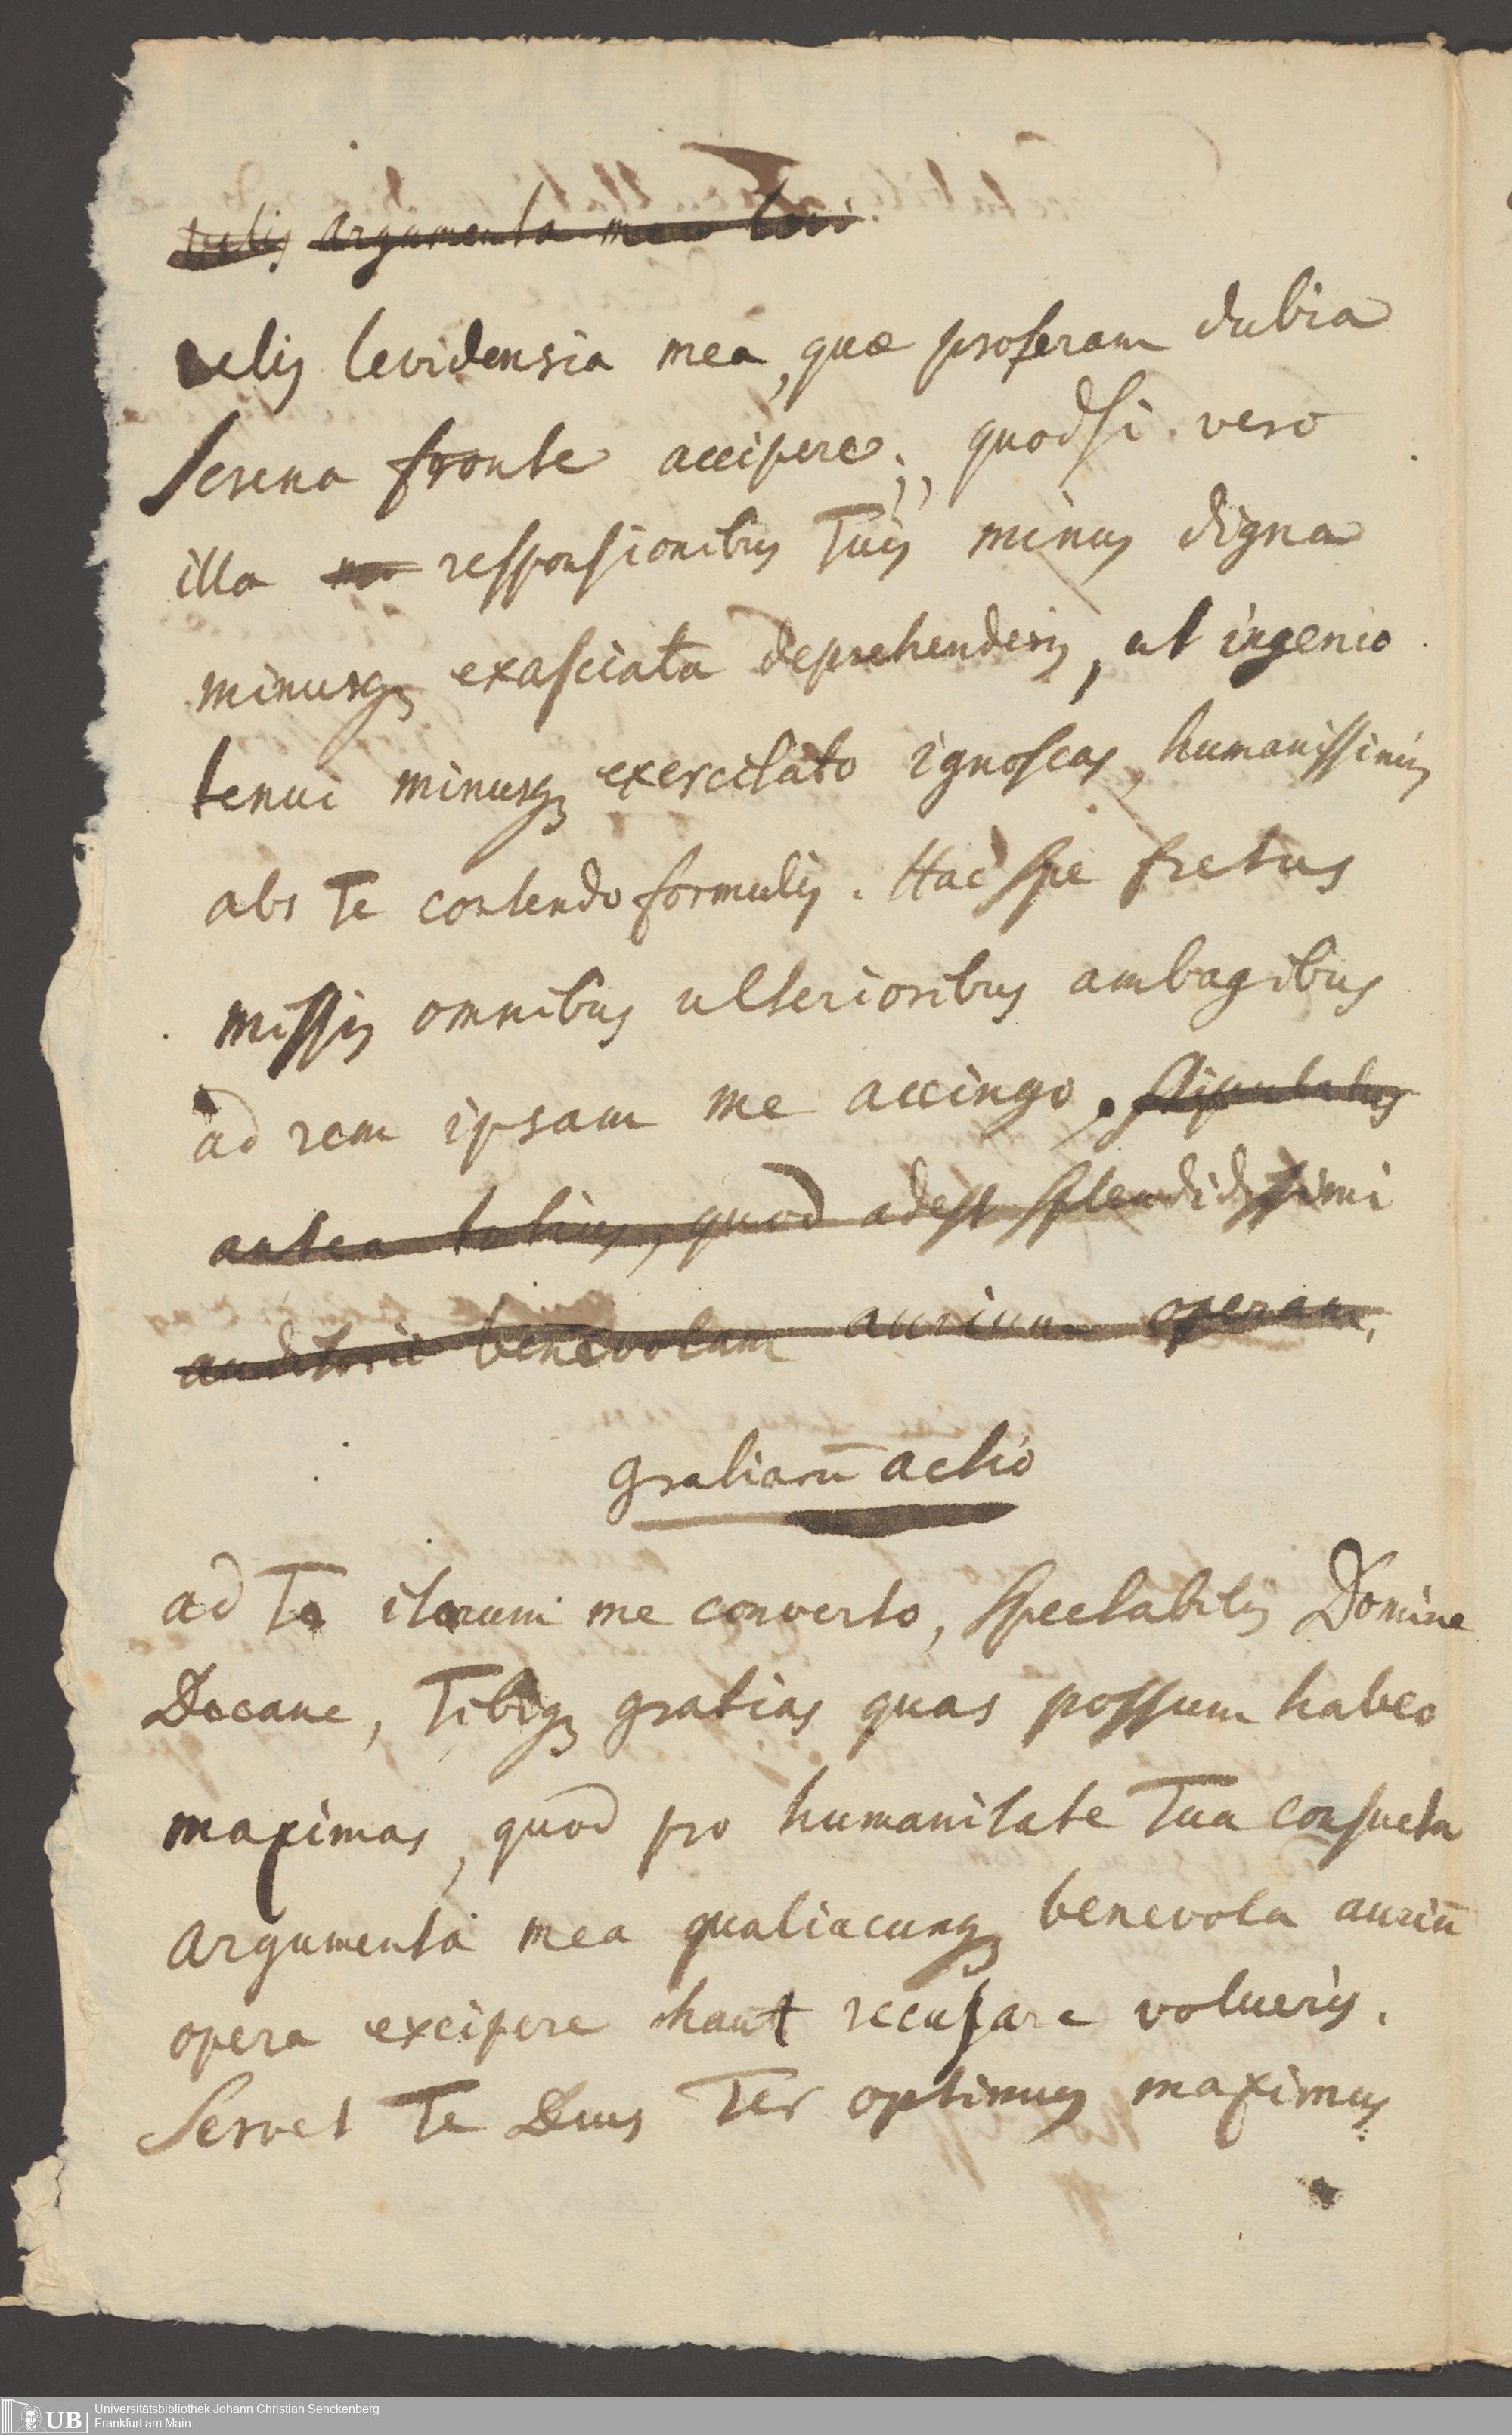 velis argumenta mea levi
velis levidensia mea, quæ proferam dubia
serena fronte accipere; quodsi vero
illa responsionibus Tuis minus digna
minusq; exasciata deprehenderis, ut ingenio
tenui minusq; exercitato ignoscas, humanissimis
abs Te contendo formulis. Hac spe fretus
missis omnibus ulterioribus ambagibus
ad rem ipsam me accingo, stipulatus
antea totius, quod adest splendidissimi
auditorii benevolam aurium operam.
gratiarū actio
ad Te iterum me converto, spectabilis Domine
Decane, Tibiq; gratias quas possum habeo
maximas, quod pro humanitate Tua consueta
argumenta mea qualiacunq; benevola auriū
opera excipere haut recusare volueris.
Servet Te Deus Ter optimus maximus
Universitätsbibliothek Johann Christian Senckenberg
Frankfurt am Main
UB